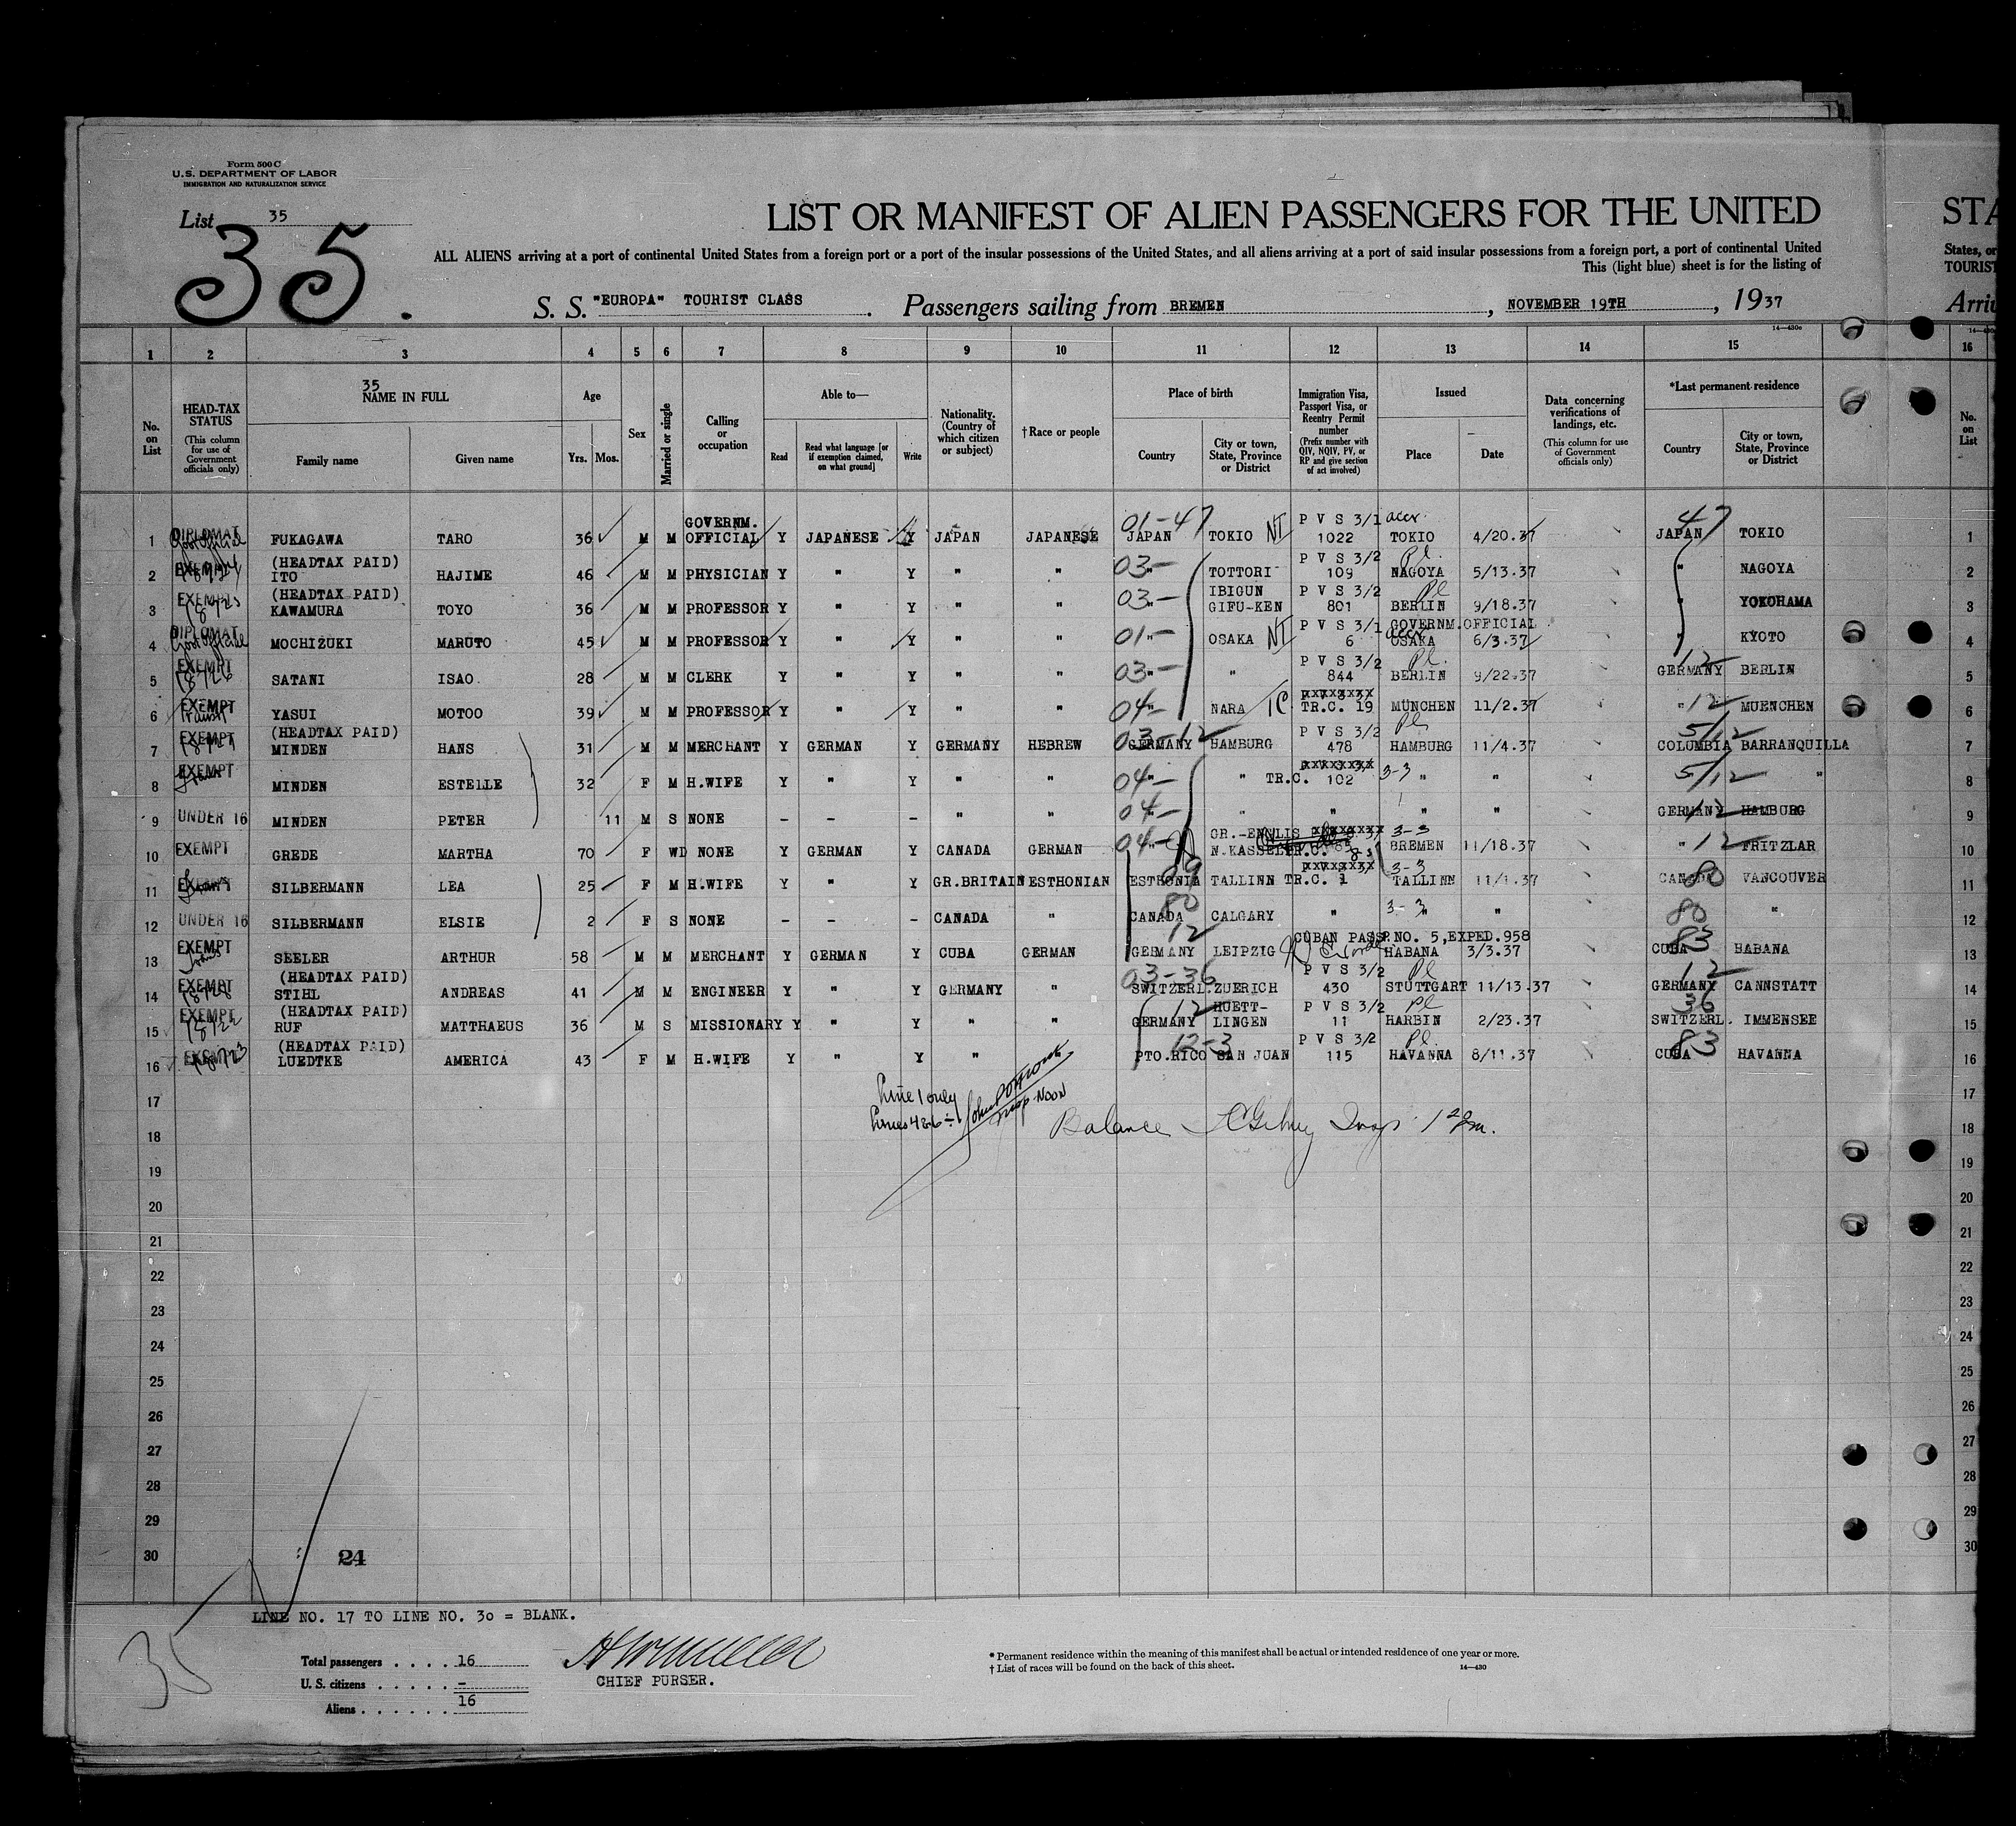 Form 500 C
U.S. DEPARTMENT OF LABOR
IMMIGRATION AND NATURALIZATION SERVICE
List 35
35.
LIST OR MANIFEST OF ALIEN PASSENGERS FOR THE UNITED
STA
ALL ALIENS arriving at a port of continental United States from a foreign port or a port of the insular possessions of the United States, and all aliens arriving at a port of said insular possessions from a foreign port, a port of continental United
States, or
This (light blue) sheet is for the listing of
TOURIST
S. S. "EUROPA" TOURIST CLASS. Passengers sailing from BREMEN, NOVEMBER 19TH, 1937
Arriv
14—430c
1 2 3 4 5 6 7 8 9 10 11 12 13 14 15 16
No. on List
HEAD-TAX STATUS (This column for use of Government officials only)
35
NAME IN FULL
Family name Given name
Age
Yrs. Mos.
Sex
Married or single
Calling or occupation
Able to—
Read
Read what language [or if exemption claimed, on what ground]
Write
Nationality. (Country of which citizen or subject)
† Race or people
Place of birth
Country
City or town, State, Province or District
Immigration Visa, Passport Visa, or Reentry Permit number (Prefix number with QIV, NQIV, PV, or RP and give section of act involved)
Issued
Place Date
Data concerning verifications of landings, etc. (This column for use of Government officials only)
*Last permanent residence
Country
City or town, State, Province or District
No. on List
1 DIPLOMAT Govt official FUKAGAWA TARO 36 M M GOVERNM. OFFICIAL Y JAPANESE Y JAPAN JAPANESE 01-47 JAPAN TOKIO NI P V S 3/1 accr. 1022 TOKIO 4/20.37 47 JAPAN TOKIO 1
2 EXEMPT (HEADTAX PAID) ITO HAJIME 46 M M PHYSICIAN Y " Y " " 03- " TOTTORI P V S 3/2 Pl. 109 NAGOYA 5/13.37 " NAGOYA 2
3 EXEMPT (HEADTAX PAID) KAWAMURA TOYO 36 M M PROFESSOR Y " Y " " 03- " IBIGUN GIFU-KEN P V S 3/2 Pl 801 BERLIN 9/18.37 " YOKOHAMA 3
4 DIPLOMAT Govt official MOCHIZUKI MARUTO 45 M M PROFESSOR Y " Y " " 01- " OSAKA NI P V S 3/1 GOVERNM.OFFICIAL accr 6 OSAKA 6/3.37 " KYOTO 4
5 EXEMPT 18726 SATANI ISAO 28 M M CLERK Y " Y " " 03- " " P V S 3/2 Pl. 844 BERLIN 9/22.37 12 GERMANY BERLIN 5
6 EXEMPT Transit YASUI MOTOO 39 M M PROFESSOR Y " Y " " 04- " NARA TC TR.C. 19 MÜNCHEN 11/2.37 " 12 MUENCHEN 6
7 EXEMPT (HEADTAX PAID) MINDEN HANS 31 M M MERCHANT Y GERMAN Y GERMANY HEBREW 03-12 GERMANY HAMBURG P V S 3/2 Pl 478 HAMBURG 11/4.37 5/12 COLUMBIA BARRANQUILLA 7
8 EXEMPT MINDEN ESTELLE 32 F M H.WIFE Y " Y " " 04- " " TR.C. 102 3-3 " " 5/12 " 8
9 UNDER 16 MINDEN PETER 11 M S NONE - - - " " 04- " " " " " GERMANY 12 HAMBURG 9
10 EXEMPT GREDE MARTHA 70 F WD NONE Y GERMAN Y CANADA GERMAN 04- " N.KASSEL 3-3 BREMEN 11/18.37 " 12 FRITZLAR 10
11 EXEMPT SILBERMANN LEA 25 F M H.WIFE Y " Y GR.BRITAIN ESTHONIAN ESTHONIA TALLINN TR.C. 1 3-3 TALLINN 11/1.37 CANADA 80 VANCOUVER 11
12 UNDER 16 SILBERMANN ELSIE 2 F S NONE - - - CANADA " 80 CANADA CALGARY " 3-3 " " 80 " 12
13 EXEMPT SEELER ARTHUR 58 M M MERCHANT Y GERMAN Y CUBA GERMAN 12 GERMANY LEIPZIG CUBAN PASSP.NO. 5,EXPED.958 HABANA 3/3.37 83 CUBA HABANA 13
14 EXEMPT 18728 (HEADTAX PAID) STIHL ANDREAS 41 M M ENGINEER Y " Y GERMANY " 03-36 SWITZERL. ZUERICH P V S 3/2 Pl 430 STUTTGART 11/13.37 12 GERMANY CANNSTATT 14
15 EXEMPT 18722 (HEADTAX PAID) RUF MATTHAEUS 36 M S MISSIONARY Y " Y " " 12 GERMANY HUETT-LINGEN P V S 3/2 Pl 11 HARBIN 2/23.37 36 SWITZERL. IMMENSEE 15
16 EXEMPT 18723 (HEADTAX PAID) LUEDTKE AMERICA 43 F M H.WIFE Y " Y " " 12-3 PTO.RICO SAN JUAN P V S 3/2 Pl. 115 HAVANNA 8/11.37 83 CUBA HAVANNA 16
17 Line 1 only 17
18 Lines 4 & 6 Insp. NOON Balance Insp. 1 18
19 19
20 20
21 21
22 22
23 23
24 24
25 25
26 26
27 27
28 28
29 29
30 24 30
LINE NO. 17 TO LINE NO. 30 = BLANK.
35
Total passengers . . . . 16
U. S. citizens . . . . . -
Aliens . . . . . . 16
CHIEF PURSER.
* Permanent residence within the meaning of this manifest shall be actual or intended residence of one year or more.
† List of races will be found on the back of this sheet.
14—430